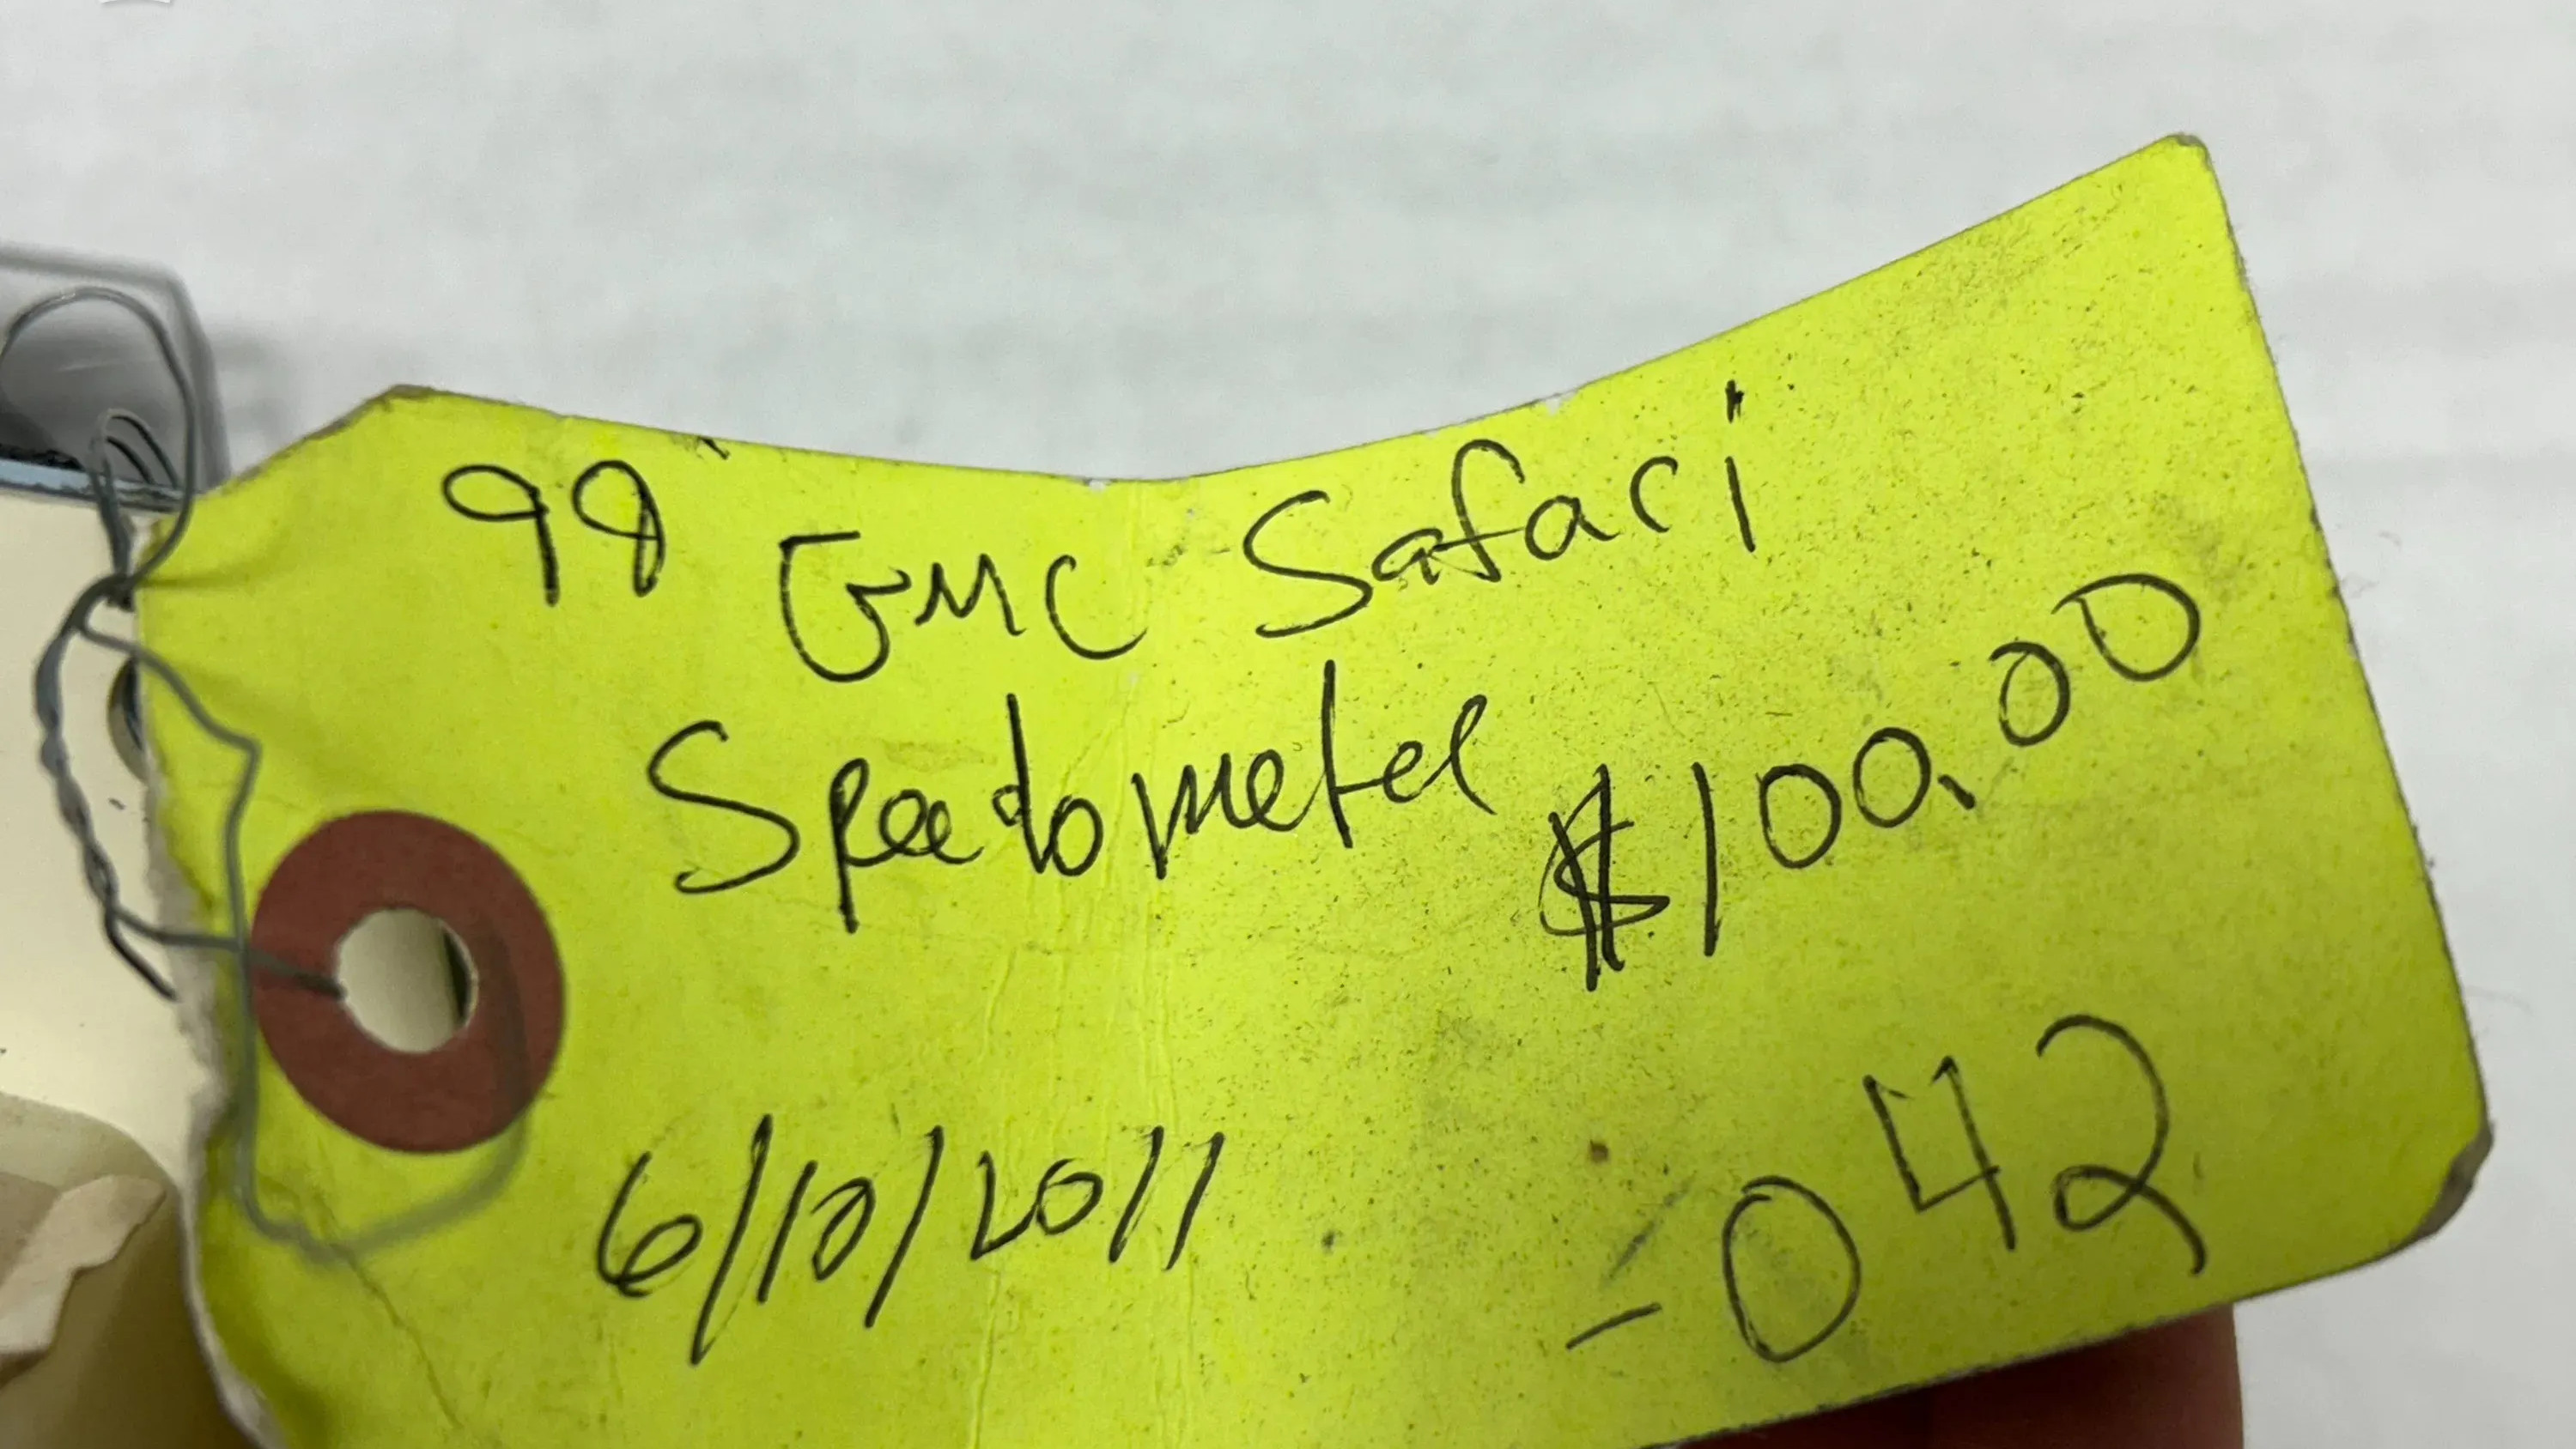 99' GMC Safari
Speedometer $100.00
6/10/2011
-042